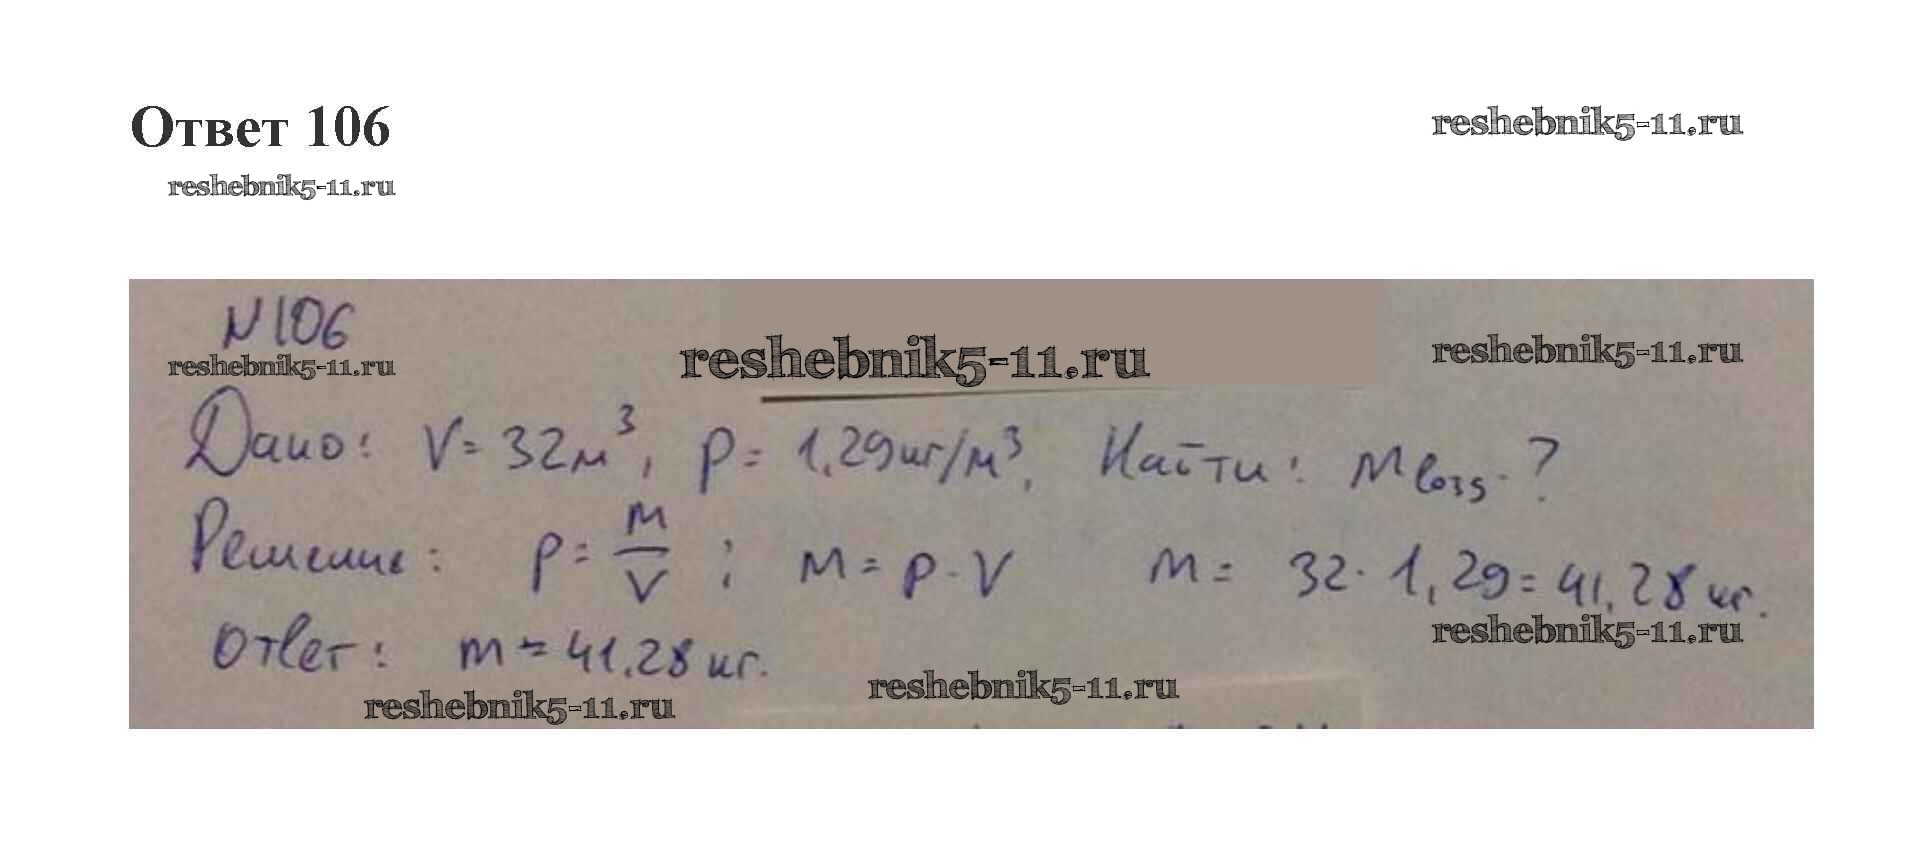 Ответ 106
reshebnik5-11.ru
reshebnik5-11.ru
N106
reshebnik5-11.ru
reshebnik5-11.ru
reshebnik5-11.ru
Дано: V = 32м³, ρ = 1,29кг/м³. Найти: m возд. ?
Решение: ρ = m/V ; m = ρ · V m = 32 · 1,29 = 41,28 кг.
reshebnik5-11.ru
Ответ: m = 41,28 кг.
reshebnik5-11.ru
reshebnik5-11.ru